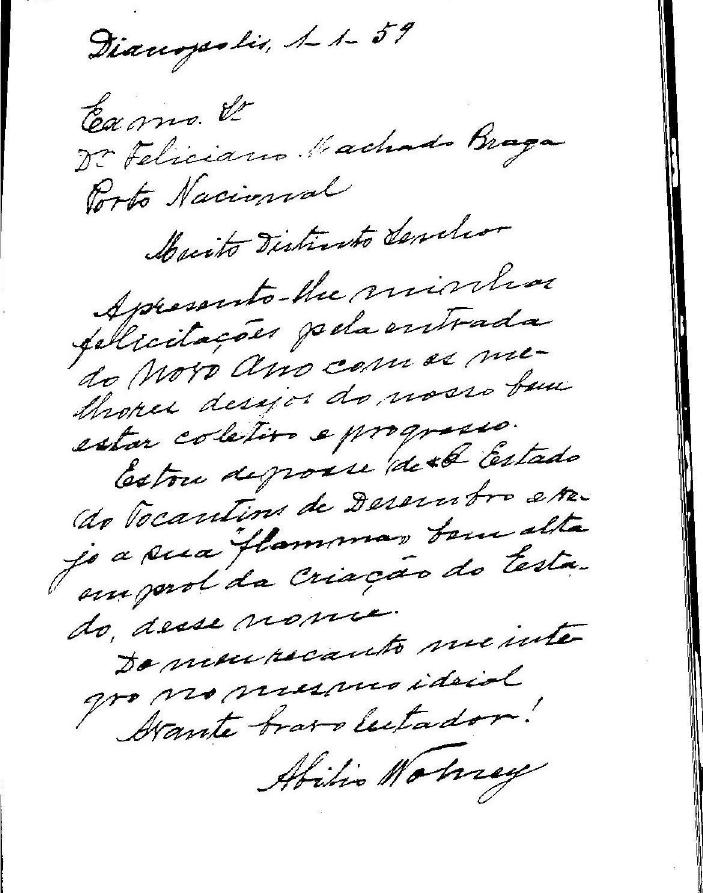 Dianopolis, 1-1-59
Exmo. Sr
Dr Feliciano Machado Braga
Porto Nacional
Muito Distinto Senhor
Apresento-lhe minhas
felicitações pela entrada
do Novo Ano com os me-
lhores desejos do nosso bem
estar coletivo e progresso.
Estou de posse de Estado
do Tocantins de Desembro e ve-
jo a sua "flamma" bem alta
em prol da Criação do Esta-
do, desse nome.
Do meu recanto me inte-
gro no mesmo ideial
Avante bravo lutador!
Abilio Wolney